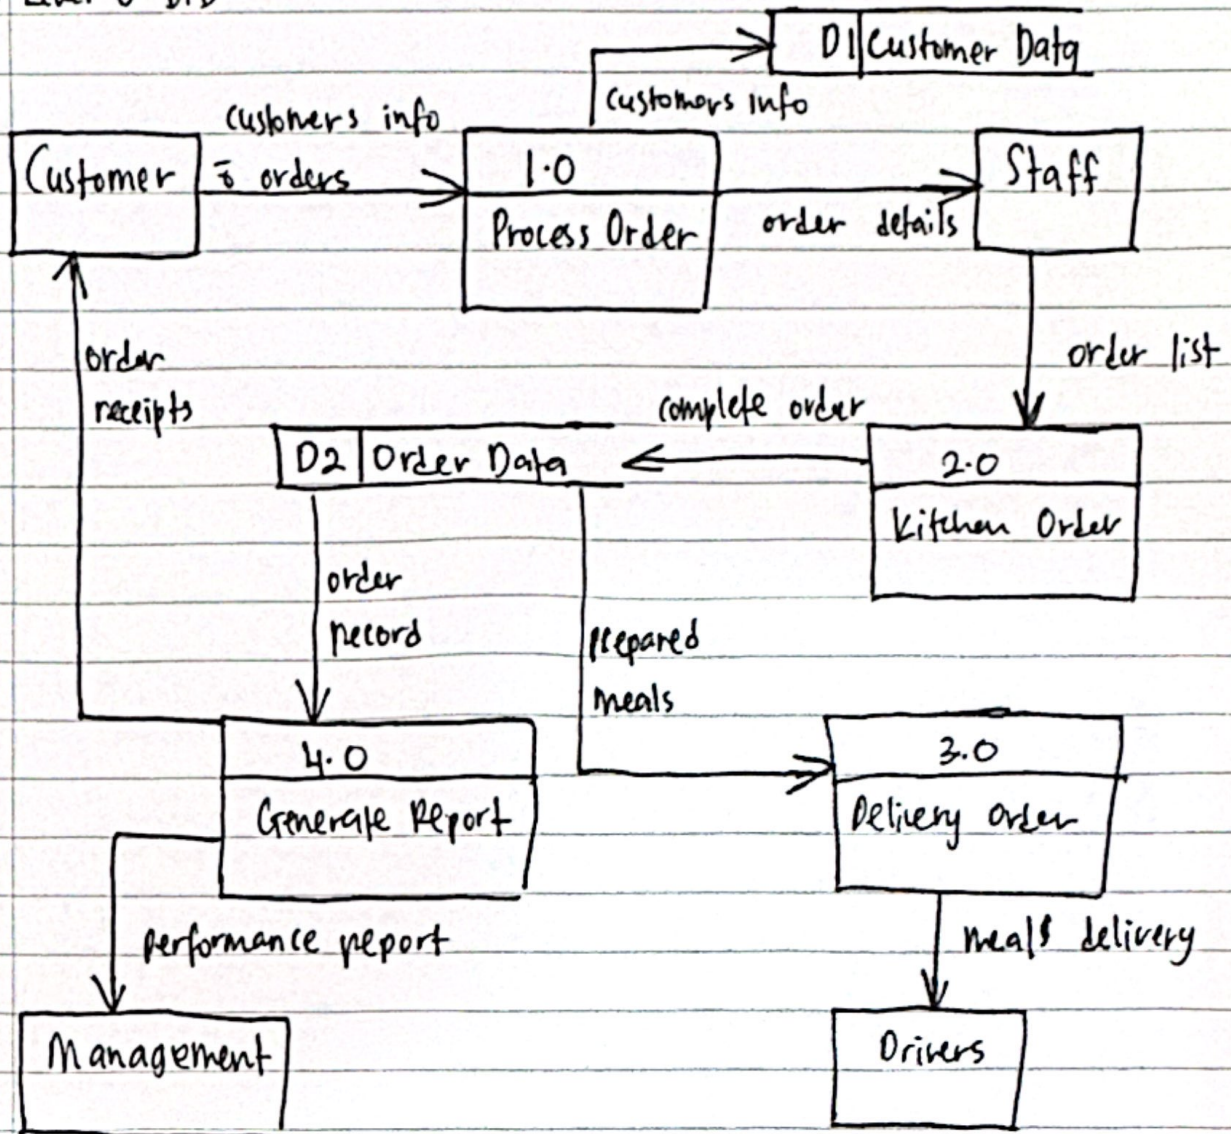 Level 0 DFD
D1 Customer Data
customers info
customers info
Customer
& orders
1.0
Process Order
order details
Staff
order list
order
receipts
complete order
D2 Order Data
2.0
Kitchen Order
order
record
prepared
meals
4.0
Generate Report
3.0
Delivery Order
performance report
meals delivery
Management
Drivers